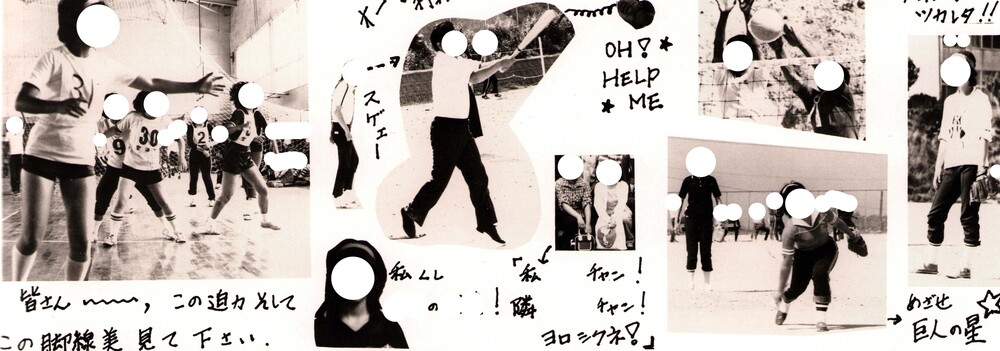 ツカレタ!!
OH!
HELP
ME
スゲェー
3
9
30
2
私
の
!
「私 チャン!
隣 チャン!
ヨロシクネ!」
皆さん 〜〜〜, この迫力 そして
この脚線美 見て 下さい.
めざせ
巨人の星